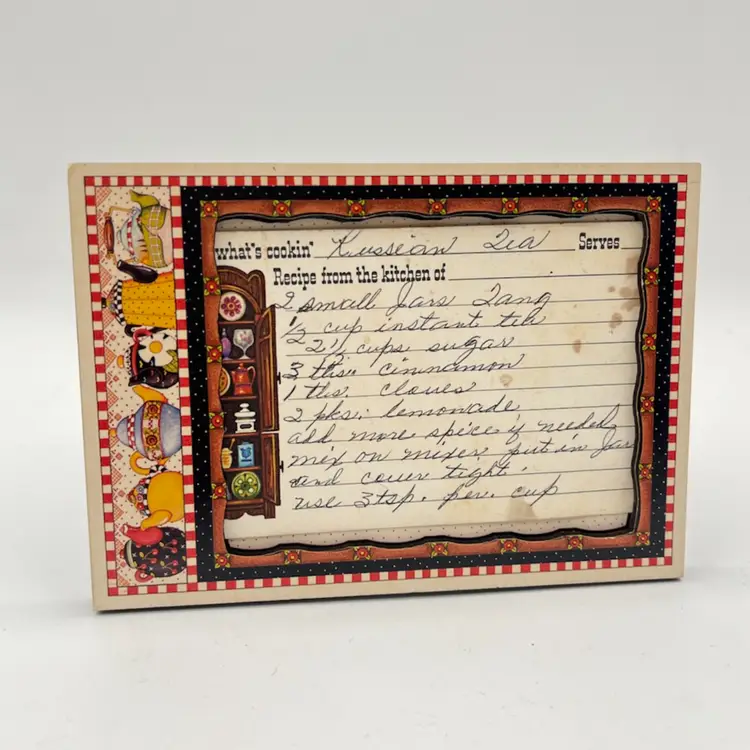 what's cookin' Russian Tea Serves
Recipe from the kitchen of
2 small Jars Tang
1/2 cup instant tea
2 1/2 cups sugar
3 tbs. cinnamon
1 tbs. cloves
2 pks. lemonade
add more spice if needed
mix on mixer put in Jar
and cover tight.
use 3 tsp. per. cup